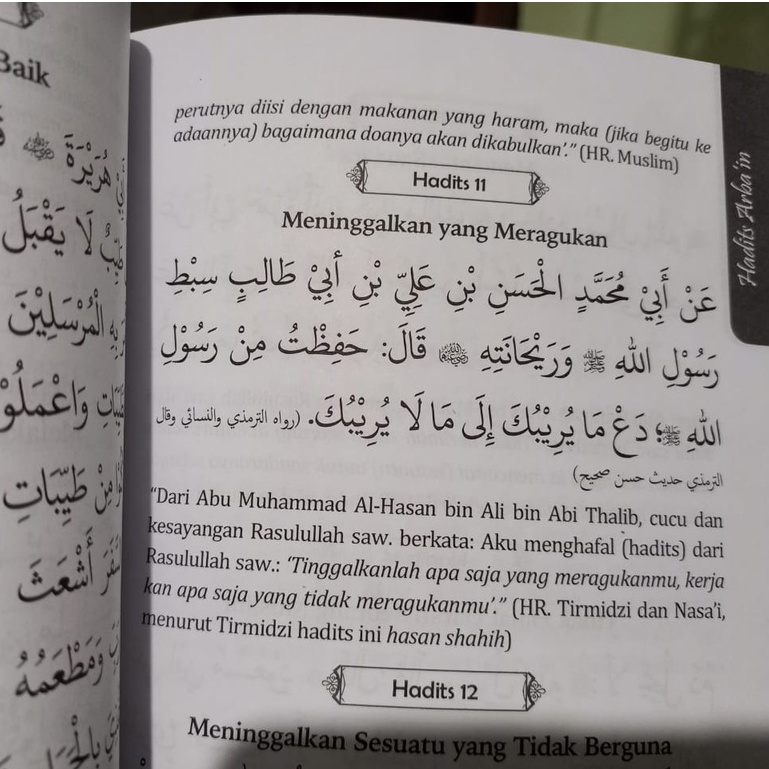 Baik
هُرَيْرَةَ
لَا يَقْبَلُ
بِهِ الْمُرْسَلِيْنَ
وَاعْمَلُوْا
مِنْ طَيِّبَاتِ
أَشْعَثَ
وَمَطْعَمُهُ
perutnya diisi dengan makanan yang haram, maka (jika begitu ke
adaannya) bagaimana doanya akan dikabulkan'." (HR. Muslim)
Hadits 11
Meninggalkan yang Meragukan
عَنْ أَبِيْ مُحَمَّدٍ الْحَسَنِ بْنِ عَلِيِّ بْنِ أَبِيْ طَالِبٍ سِبْطِ
رَسُوْلِ اللهِ ﷺ وَرَيْحَانَتِهِ ﵁ قَالَ: حَفِظْتُ مِنْ رَسُوْلِ
اللهِ ﷺ؛ دَعْ مَا يُرِيْبُكَ إِلَى مَا لَا يُرِيْبُكَ. (رواه الترمذي والنسائي وقال
الترمذي حديث حسن صحيح)
"Dari Abu Muhammad Al-Hasan bin Ali bin Abi Thalib, cucu dan
kesayangan Rasulullah saw. berkata: Aku menghafal (hadits) dari
Rasulullah saw.: 'Tinggalkanlah apa saja yang meragukanmu, kerja
kan apa saja yang tidak meragukanmu'." (HR. Tirmidzi dan Nasa'i,
menurut Tirmidzi hadits ini hasan shahih)
Hadits 12
Meninggalkan Sesuatu yang Tidak Berguna
Hadits Arba'in